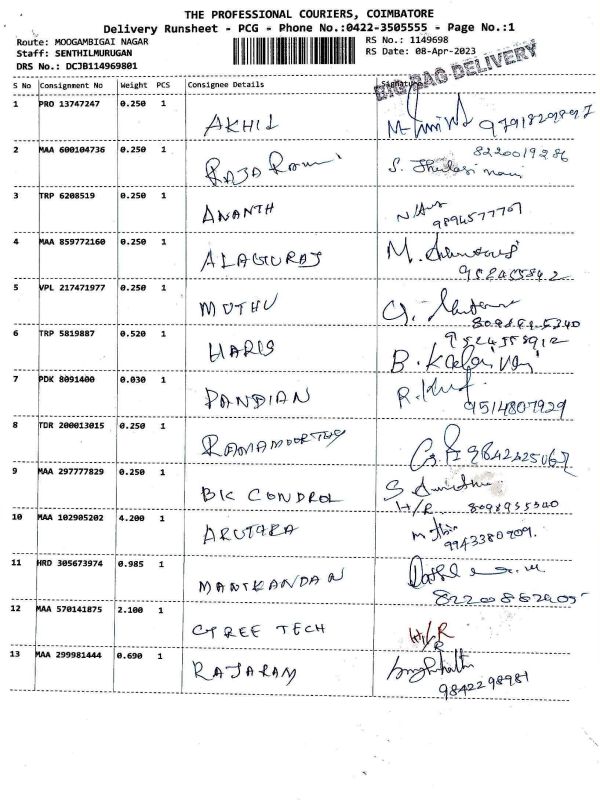 THE PROFESSIONAL COURIERS, COIMBATORE
Delivery Runsheet - PCG - Phone No.:0422-3505555 - Page No.:1
Route: MOOGAMBIGAI NAGAR RS No.: 1149698
Staff: SENTHILMURUGAN RS Date: 08-Apr-2023
DRS No.: DCJB114969801
BIG BAG DELIVERY
S No Consignment No Weight PCS Consignee Details Signature
1 PRO 13747247 0.250 1
AKHIL
2 MAA 600104736 0.250 1 8220019286
RAJA RAM S.
3 TRP 6208519 0.250 1
ANANTH
9894577707
4 MAA 859772160 0.250 1
ALAGURAJ M.
5 VPL 217471977 0.250 1
MUTHU
6 TRP 5819887 0.520 1
HARIS B. Kalaivani
7 PDK 8091400 0.030 1
PANDIAN R.
9514807929
8 TDR 200013015 0.250 1
RAMAMOORTHY
9 MAA 297777829 0.250 1
BK CONDROL S
H/R
10 MAA 102905202 4.200 1
ARUTARA
9943380909
11 HRD 305673974 0.985 1
MANIKANDAN
12 MAA 570141875 2.100 1
CTREE TECH H/R
13 MAA 299981444 0.690 1
RAJARAM
9842298981